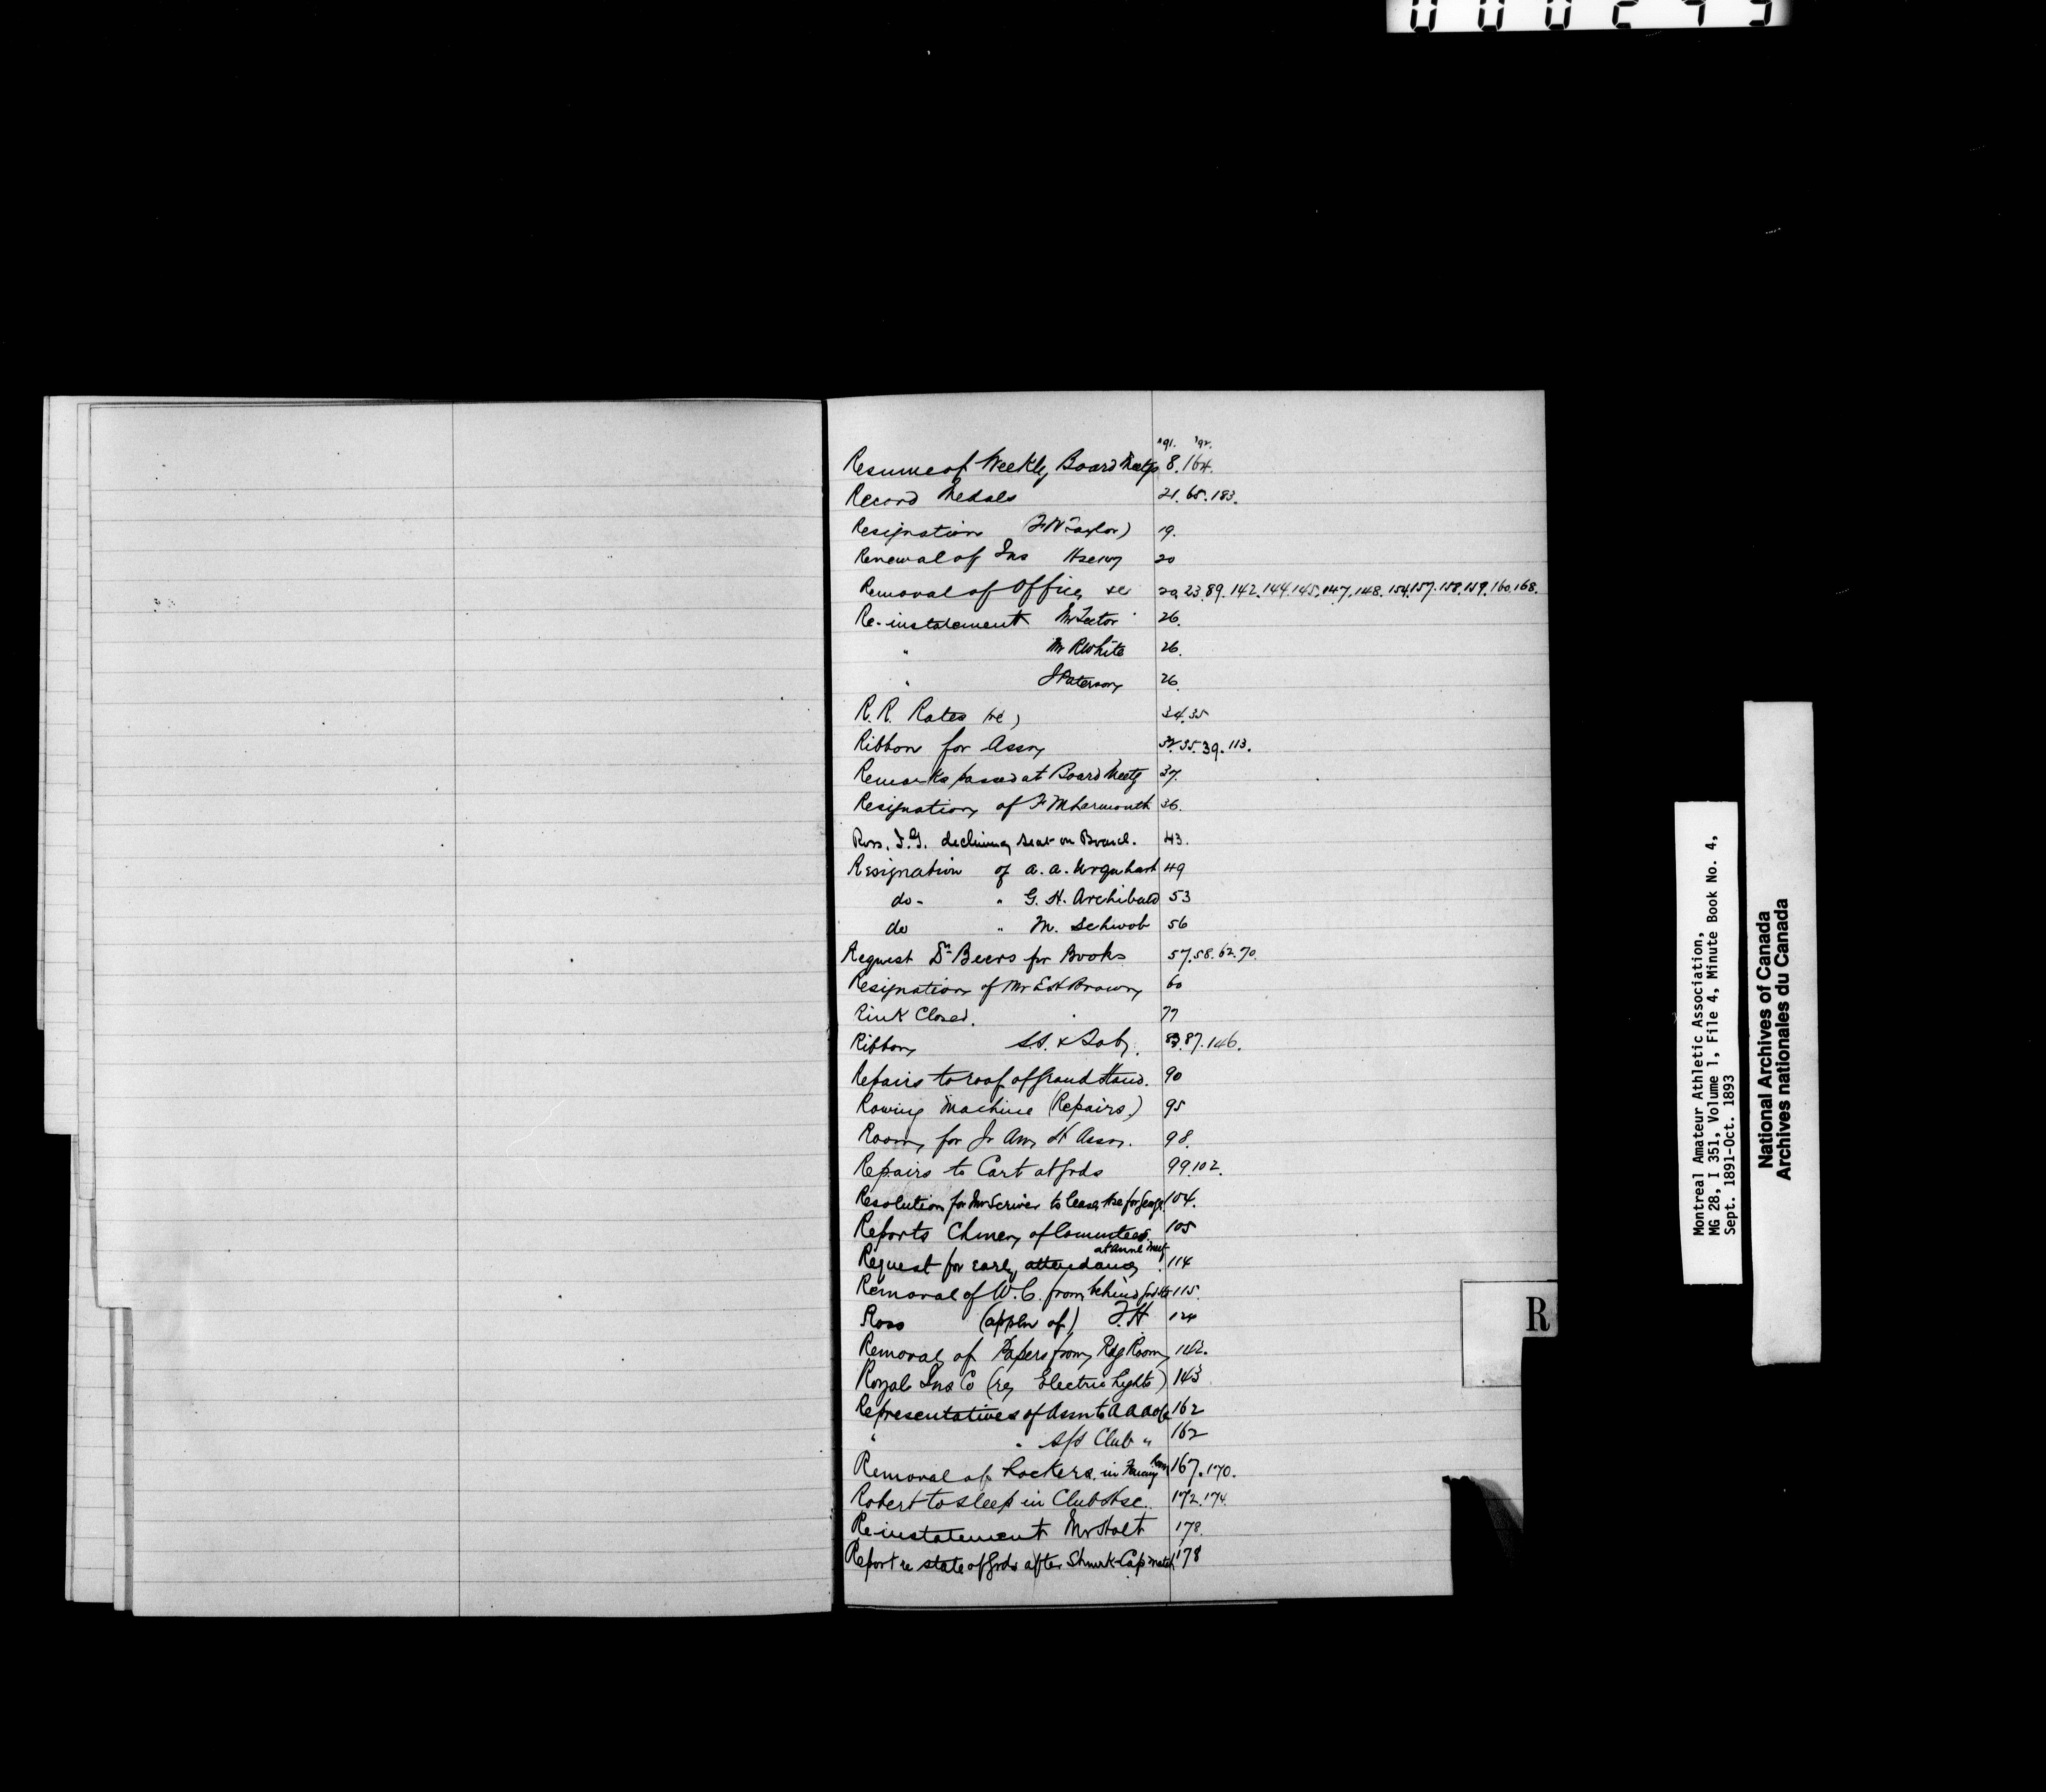 000249
'91. '92.
Resume of Weekly Board Meetgs 8. 164.
Record Medals 21. 65. 183.
Resignation (F W Taylor) 19.
Renewal of Ins 20
Removal of Office, &c 20, 23, 89. 142. 144. 145. 147. 148. 154. 157. 158. 159. 160. 168.
Re-instatement Mr 26.
" Mr R White 26.
" J Paterson 26.
R. R. Rates (re) 34. 35
Ribbon for Assn 32. 35. 39. 113.
Remarks passed at Board Meetg 37.
Resignation of F M Larmonth 36.
Ross. F. G. declining seat on Board. 43.
Resignation of A. A. Urquhart 49
do - " G. H. Archibald 53
do " M. Schwob 56
Request Dr Beers for Books 57. 58. 62. 70.
Resignation of Mr E H Brown 60
Rink Closed. 77
Ribbon S.S. & Tob. 83. 87. 146.
Repairs to roof of Grand Stand. 90
Rowing Machine (Repairs.) 95
Room for Jr Am H Assn. 98.
Repairs to Cart at Grds 99. 102.
Resolution for Mr Scriver to lease Hse for 104.
Reports Chmen of Committees. 105
at Annl Meetg
Request for early attendance 114
Removal of W.C. from behind 115.
Ross (appln of) F. H 124
Removal of Papers from Rdg Room 142.
Royal Ins Co (re Electric Lights) 143
Representatives of Assn to A A A of C 162
" " S/S Club " 162
Removal of Lockers in Fencing Room 167. 170.
Robert to sleep in Club Hse. 172. 174.
Re-instatement Mr Holt 178.
Report re state of Grds after Shmrk-Cap match 178
R
Montreal Amateur Athletic Association,
MG 28, I 351, Volume 1, File 4, Minute Book No. 4,
Sept. 1891-Oct. 1893
National Archives of Canada
Archives nationales du Canada